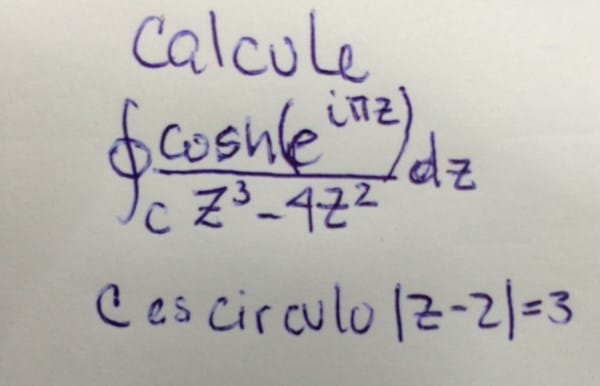 Calcule
∮_C cosh(e^{iπz}) / (z³ - 4z²) dz
C es circulo |z-2|=3